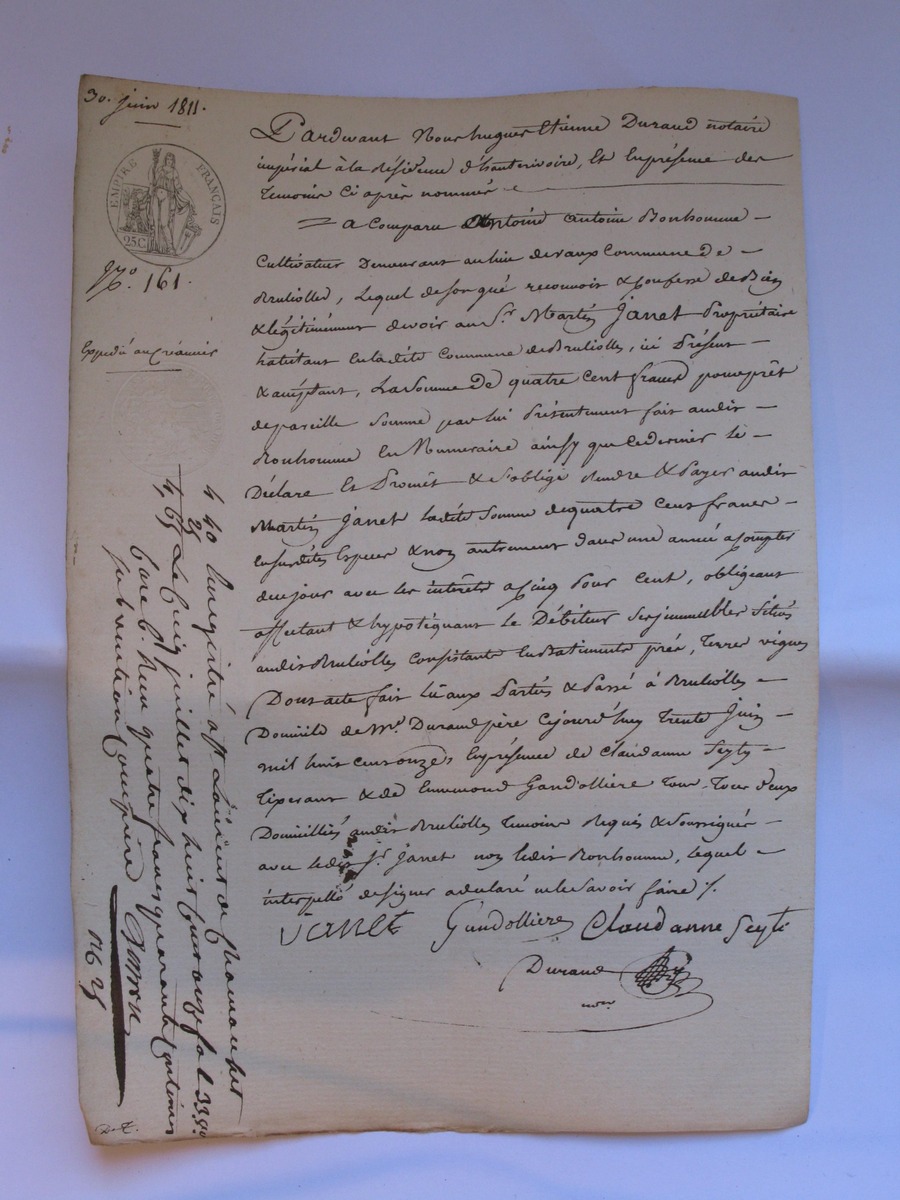 30. juin 1811.
EMPIRE FRANÇAIS
25C
N.o 161.
Expédié au Créancier
Pardevant Nous hugues Etienne Durand notaire
impérial à la Résidence d'hauterivoire, Et En présence des
temoins Ci après nommés
= a Comparu Antoine Bonhomme –
Cultivateur Demeurant au lieu de vaux Commune de –
Brulioles, Lequel de son gré reconnoit & Confesse de Bien
& légitimement devoir au Sr. Martin Janet Propriétaire
habitant En la dite Commune de Brulioles, ici Présent –
& acceptant, La Somme De quatre Cent francs pour prêt
de pareille Somme par lui Présentement fait audit –
Bonhomme En Numeraire ainsy que ce dernier le –
Déclare Et Promet & s'oblige Rendre & Payer audit
Martin Janet Ladite Somme de quatre Cent francs –
En susdites Especes & non autrement dans une année a Compter
de ce jour avec les intérêts a Cinq Pour Cent, obligeant
affectant & hypotéquant Le Débiteur Ses immeubles Situés
audit Brulioles Consistants En Batiments prés, terres vignes
Dont acte fait lû aux Parties & Passé à Brulioles –
Domicile de Mr. Durand père Cejourd'huy trente Juin –
mil huit Cent onze, En présence de Claudanne Seyty –
tixerant & de Ennemond Gandolliere tous deux
Domiciliés audit Brulioles temoins Requis & Soussignés –
avec ledit Sr. Janet non ledit Bonhomme, Lequel –
interpellé de signer a déclaré ne le Savoir faire /.
Janet Gandolliere Claudanne Seyte
Durand
nore
4 40
25
4,65
Enregistré à St Laurent de Chamousset
Le Cinq juillet dix huit Cent onze fol 33
Case Reçu quatre francs quarante Centimes
subvention Comprise